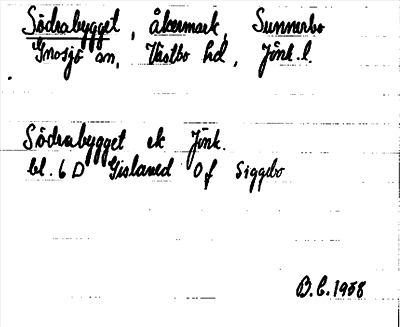 Södrabygget, åkermark, Sunnerbo
Gnosjö sn, Västbo hd, Jönk. l.
Södrabygget ek Jönk.
bl. 6 D Gislaved Of Siggebo
B.E. 1958